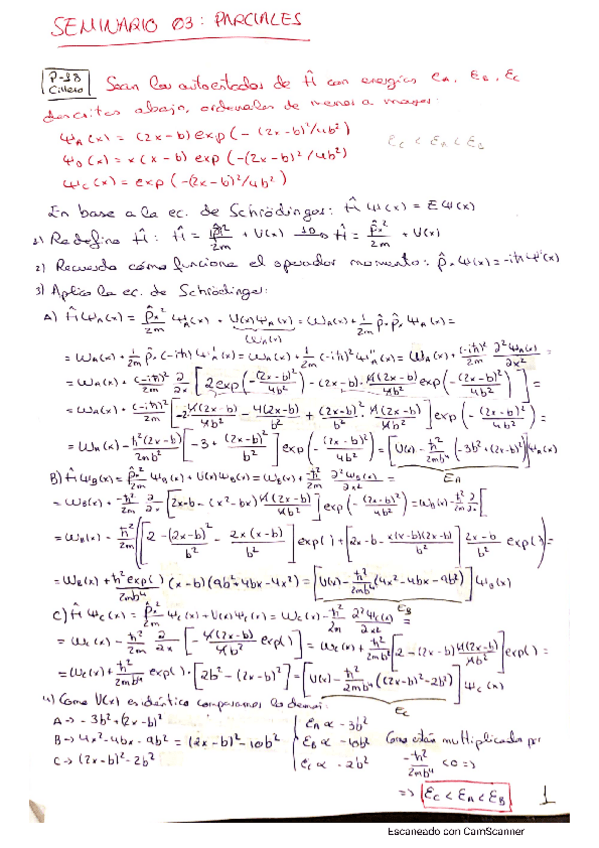 SEMINARIO 03: PARCIALES
P-38 Cillero
Sean los autoestados de Ĥ con energías E_A, E_B, E_C
descritos abajo, ordenalos de menor a mayor:
Ψ_A(x) = (2x-b) exp(-(2x-b)²/4b²)
Ψ_B(x) = x(x-b) exp(-(2x-b)²/4b²)
Ψ_C(x) = exp(-(2x-b)²/4b²)
E_C < E_A < E_B
En base a la ec. de Schrödinger: Ĥ Ψ(x) = E Ψ(x)
1) Redefino Ĥ: Ĥ = p̂²/2m + U(x) 1D → Ĥ = p̂ₓ²/2m + U(x)
2) Recuerdo cómo funciona el operador momento: p̂ₓ Ψ(x) = -iħ Ψ'(x)
3) Aplico la ec. de Schrödinger:
A) Ĥ Ψ_A(x) = p̂ₓ²/2m Ψ_A(x) + U(x)Ψ_A(x) = ω_A(x) + 1/2m p̂ₓ p̂ₓ Ψ_A(x) =
ω_A(x)
= ω_A(x) + 1/2m p̂ₓ (-iħ) Ψ'_A(x) = ω_A(x) + 1/2m (-iħ)² Ψ''_A(x) = ω_A(x) + (-iħ)²/2m ∂²Ψ_A(x)/∂x² =
= ω_A(x) + (-iħ)²/2m ∂/∂x [2exp(-(2x-b)²/4b²) - (2x-b)·4(2x-b)/4b² exp(-(2x-b)²/4b²)] =
= ω_A(x) + (-iħ)²/2m [-2·4(2x-b)/4b² - 4(2x-b)/b² + (2x-b)²/b² · 4(2x-b)/4b²] exp(-(2x-b)²/4b²) =
= ω_A(x) - ħ²(2x-b)/2mb² [-3 + (2x-b)²/b²] exp(-(2x-b)²/4b²) = [U(x) - ħ²/2mb⁴ (-3b² + (2x-b)²)] Ψ_A(x)
E_A
B) Ĥ Ψ_B(x) = p̂ₓ²/2m Ψ_B(x) + U(x)Ψ_B(x) = ω_B(x) + -ħ²/2m ∂²Ψ_B(x)/∂x² =
= ω_B(x) + -ħ²/2m ∂/∂x [2x-b - (x²-bx) 4(2x-b)/4b²] exp(-(2x-b)²/4b²) = ω_B(x) - ħ²/2m ∂/∂x [
= ω_B(x) - ħ²/2m ([2 - (2x-b)²/b² - 2x(x-b)/b²] exp( ) + [2x-b - x(x-b)(2x-b)/b²] 2x-b/b² exp( )) =
= ω_B(x) + ħ² exp( )/2mb⁴ (x-b)(9b² + 4bx - 4x²) = [U(x) - ħ²/2mb⁴ (4x² - 4bx - 9b²)] Ψ_B(x)
E_B
C) Ĥ Ψ_C(x) = p̂ₓ²/2m Ψ_C(x) + U(x)Ψ_C(x) = ω_C(x) - ħ²/2m ∂²Ψ_C(x)/∂x² =
= ω_C(x) - ħ²/2m ∂/∂x [-4(2x-b)/4b² exp( )] = ω_C(x) + ħ²/2mb² [2 - (2x-b) 4(2x-b)/4b²] exp( ) =
= ω_C(x) + ħ²/2mb⁴ exp( )·[2b² - (2x-b)²] = [U(x) - ħ²/2mb⁴ ((2x-b)² - 2b²)] Ψ_C(x)
E_C
4) Como U(x) es idéntico comparamos lo demás:
A → -3b² + (2x-b)²
B → 4x² - 4bx - 9b² = (2x-b)² - 10b²
C → (2x-b)² - 2b²
E_A ∝ -3b²
E_B ∝ -10b²
E_C ∝ -2b²
Como están multiplicados por
-ħ²/2mb⁴ < 0 =>
=> E_C < E_A < E_B
1
Escaneado con CamScanner